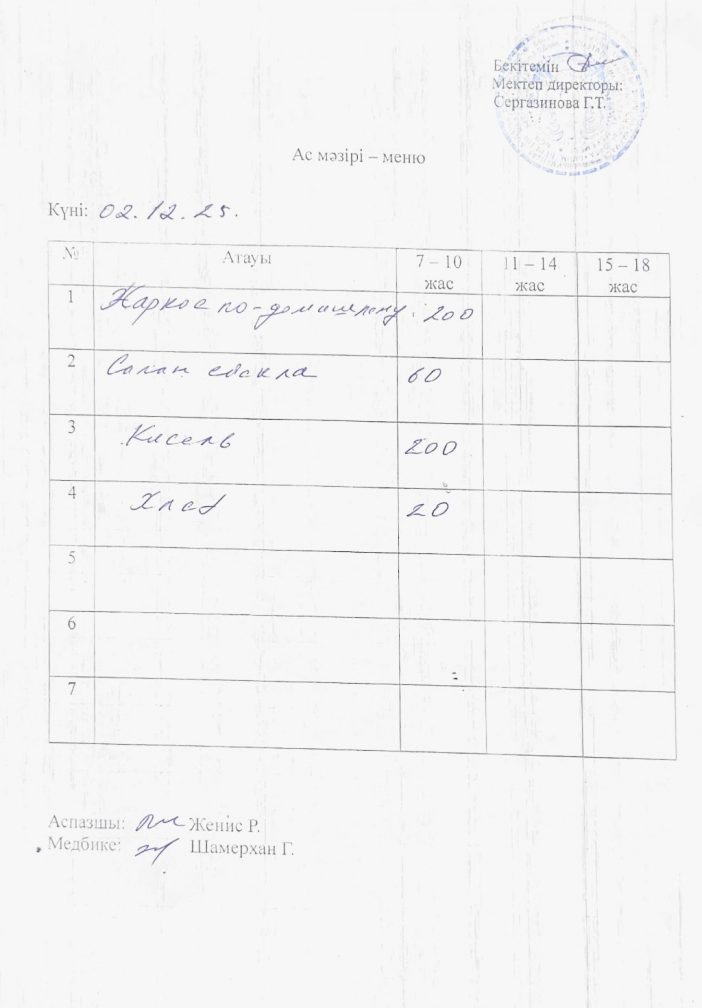 Бекітемін
Мектеп директоры:
Сергазинова Г.Т.
Ас мәзірі – меню
Күні: 02.12.25.
№ Атауы 7 – 10 жас 11 – 14 жас 15 – 18 жас
1 Жаркое по-домашнему. 200
2 Салат свекла 60
3 Кисель 200
4 Хлеб 20
5
6
7
Аспазшы: Женис Р.
Медбике: Шамерхан Г.